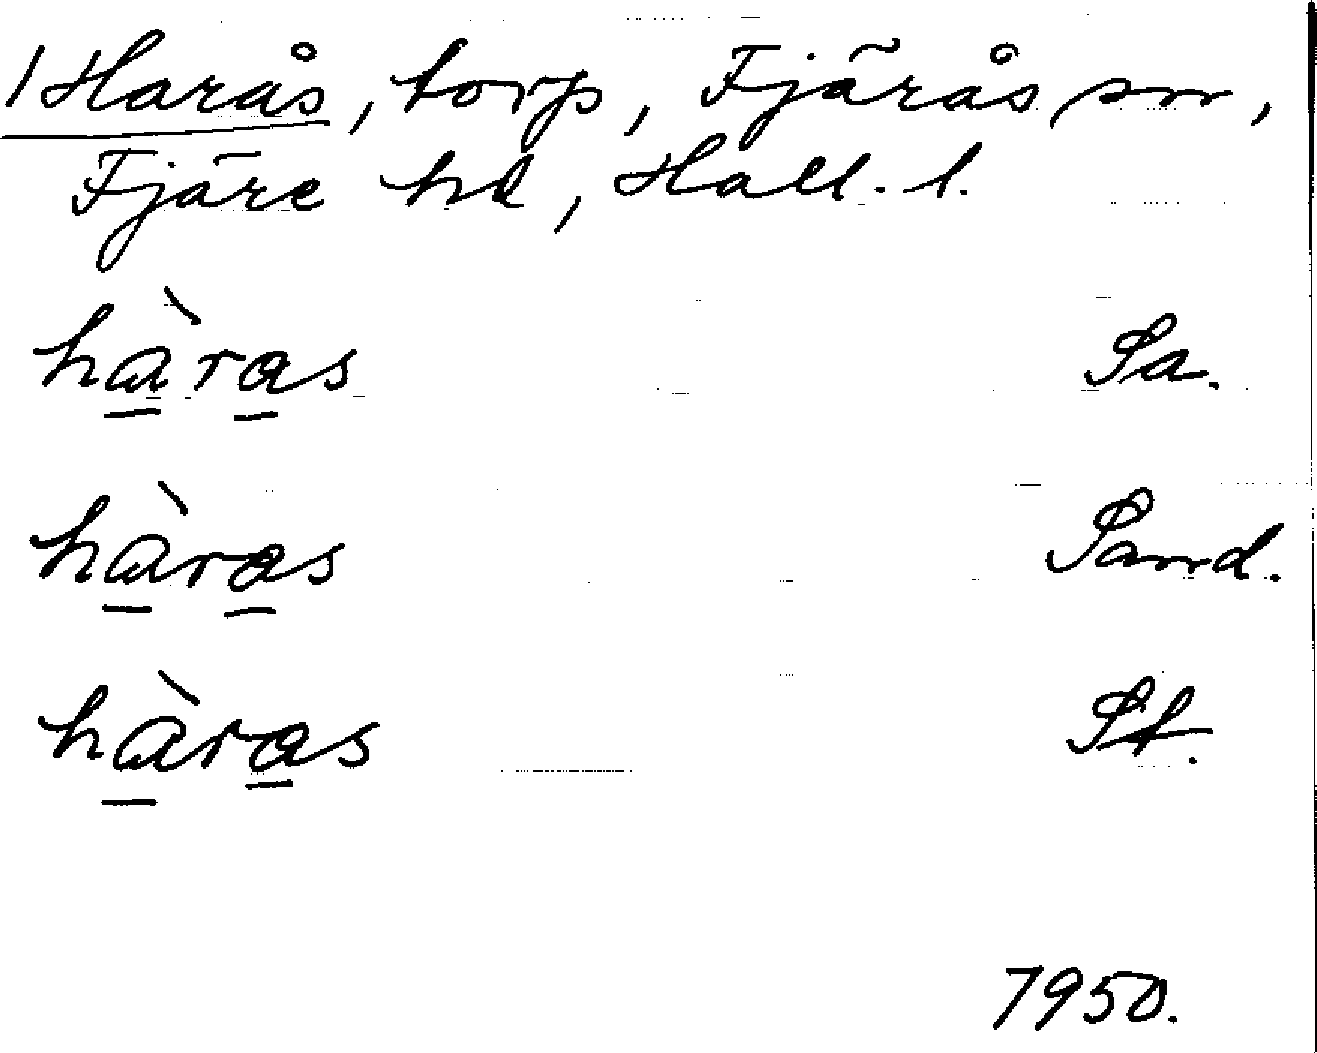 /Harås, torp, Fjärås sn,
Fjäre hd, Hall. l.
hàras Sa.
hàras Sand.
hàras St.
7950.